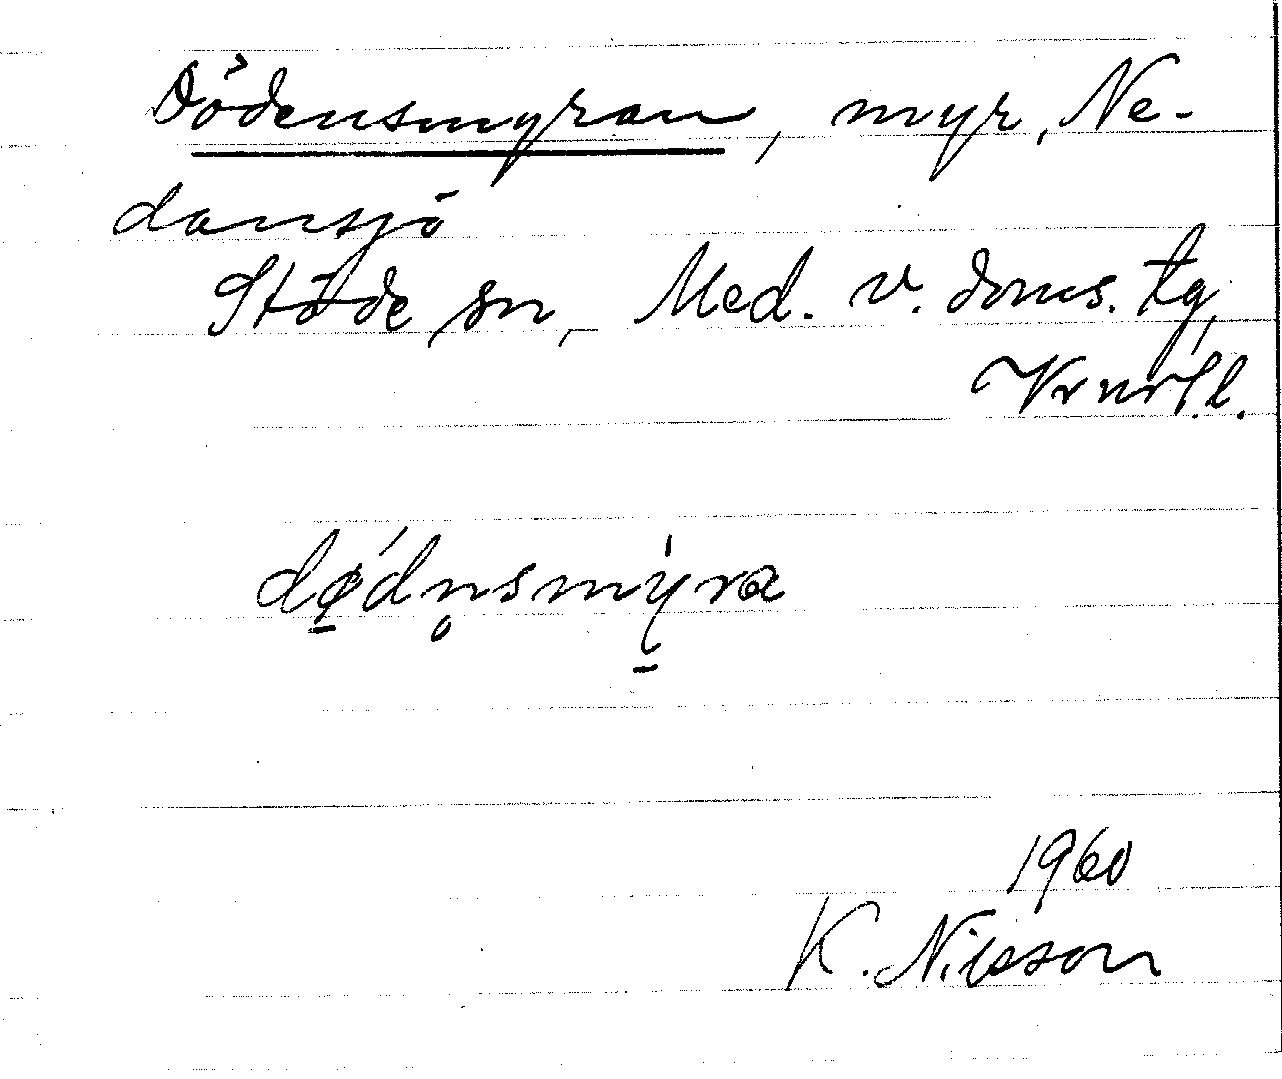 Dödensmyran, myr, Ne-
dansjö
Stöde sn, Med. v. doms. tg,
Vrnrl.l.
dǿ̱dn̥smỳ̱ra
1960
K. Nilsson